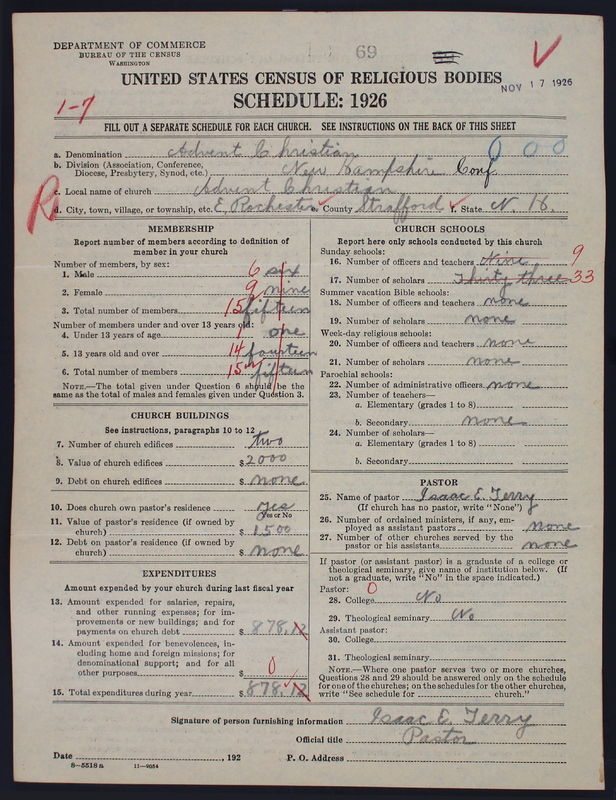 69
DEPARTMENT OF COMMERCE
BUREAU OF THE CENSUS
WASHINGTON
NOV 17 1926
UNITED STATES CENSUS OF RELIGIOUS BODIES
SCHEDULE: 1926
1-7
FILL OUT A SEPARATE SCHEDULE FOR EACH CHURCH. SEE INSTRUCTIONS ON THE BACK OF THIS SHEET
a. Denomination Advent Christian 0 0 0
b. Division (Association, Conference, Diocese, Presbytery, Synod, etc.) New Hampshire Conf
R
c. Local name of church Advent Christian
d. City, town, village, or township, etc. E Rochester e. County Strafford f. State N. H.
MEMBERSHIP
Report number of members according to definition of
member in your church
Number of members, by sex:
1. Male 6 six
2. Female 9 nine
3. Total number of members 15 fifteen
Number of members under and over 13 years old:
4. Under 13 years of age one
5. 13 years old and over 14 fourteen
6. Total number of members 15 fifteen
NOTE.—The total given under Question 6 should be the
same as the total of males and females given under Question 3.
CHURCH BUILDINGS
See instructions, paragraphs 10 to 12
7. Number of church edifices two
8. Value of church edifices $2000
9. Debt on church edifices $ none
10. Does church own pastor's residence yes
Yes or No
11. Value of pastor's residence (if owned by
church) $1500
12. Debt on pastor's residence (if owned by
church) $ none
EXPENDITURES
Amount expended by your church during last fiscal year
13. Amount expended for salaries, repairs,
and other running expenses; for im-
provements or new buildings; and for
payments on church debt $ 878.12
14. Amount expended for benevolences, in-
cluding home and foreign missions; for
denominational support; and for all
other purposes $ 0
15. Total expenditures during year $878.12
CHURCH SCHOOLS
Report here only schools conducted by this church
Sunday schools:
16. Number of officers and teachers Nine 9
17. Number of scholars Thirty three 33
Summer vacation Bible schools:
18. Number of officers and teachers none
19. Number of scholars none
Week-day religious schools:
20. Number of officers and teachers none
21. Number of scholars none
Parochial schools:
22. Number of administrative officers none
23. Number of teachers—
a. Elementary (grades 1 to 8)
b. Secondary none
24. Number of scholars—
a. Elementary (grades 1 to 8)
b. Secondary
PASTOR
25. Name of pastor Isaac E. Terry
(If church has no pastor, write "None")
26. Number of ordained ministers, if any, em-
ployed as assistant pastors none
27. Number of other churches served by the
pastor or his assistants none
If pastor (or assistant pastor) is graduate of a college or
theological seminary, give name of institution below. (If
not a graduate, write "No" in the space indicated.)
Pastor: 0
28. College No
29. Theological seminary No
Assistant pastor:
30. College
31. Theological seminary
NOTE.—Where one pastor serves two or more churches,
Questions 28 and 29 should be answered only on the schedule
for one of the churches; on the schedules for the other churches,
write "See schedule for church."
Signature of person furnishing information Isaac E. Terry
Official title Pastor
Date , 192 P. O. Address
8-5518a 11-9054